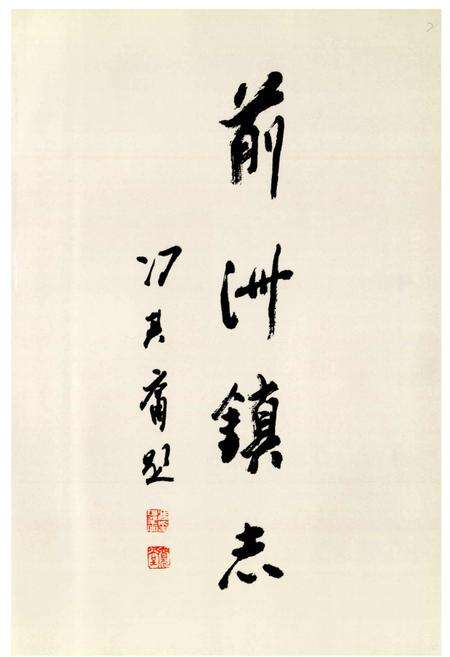 前洲鎮志
冯其庸题